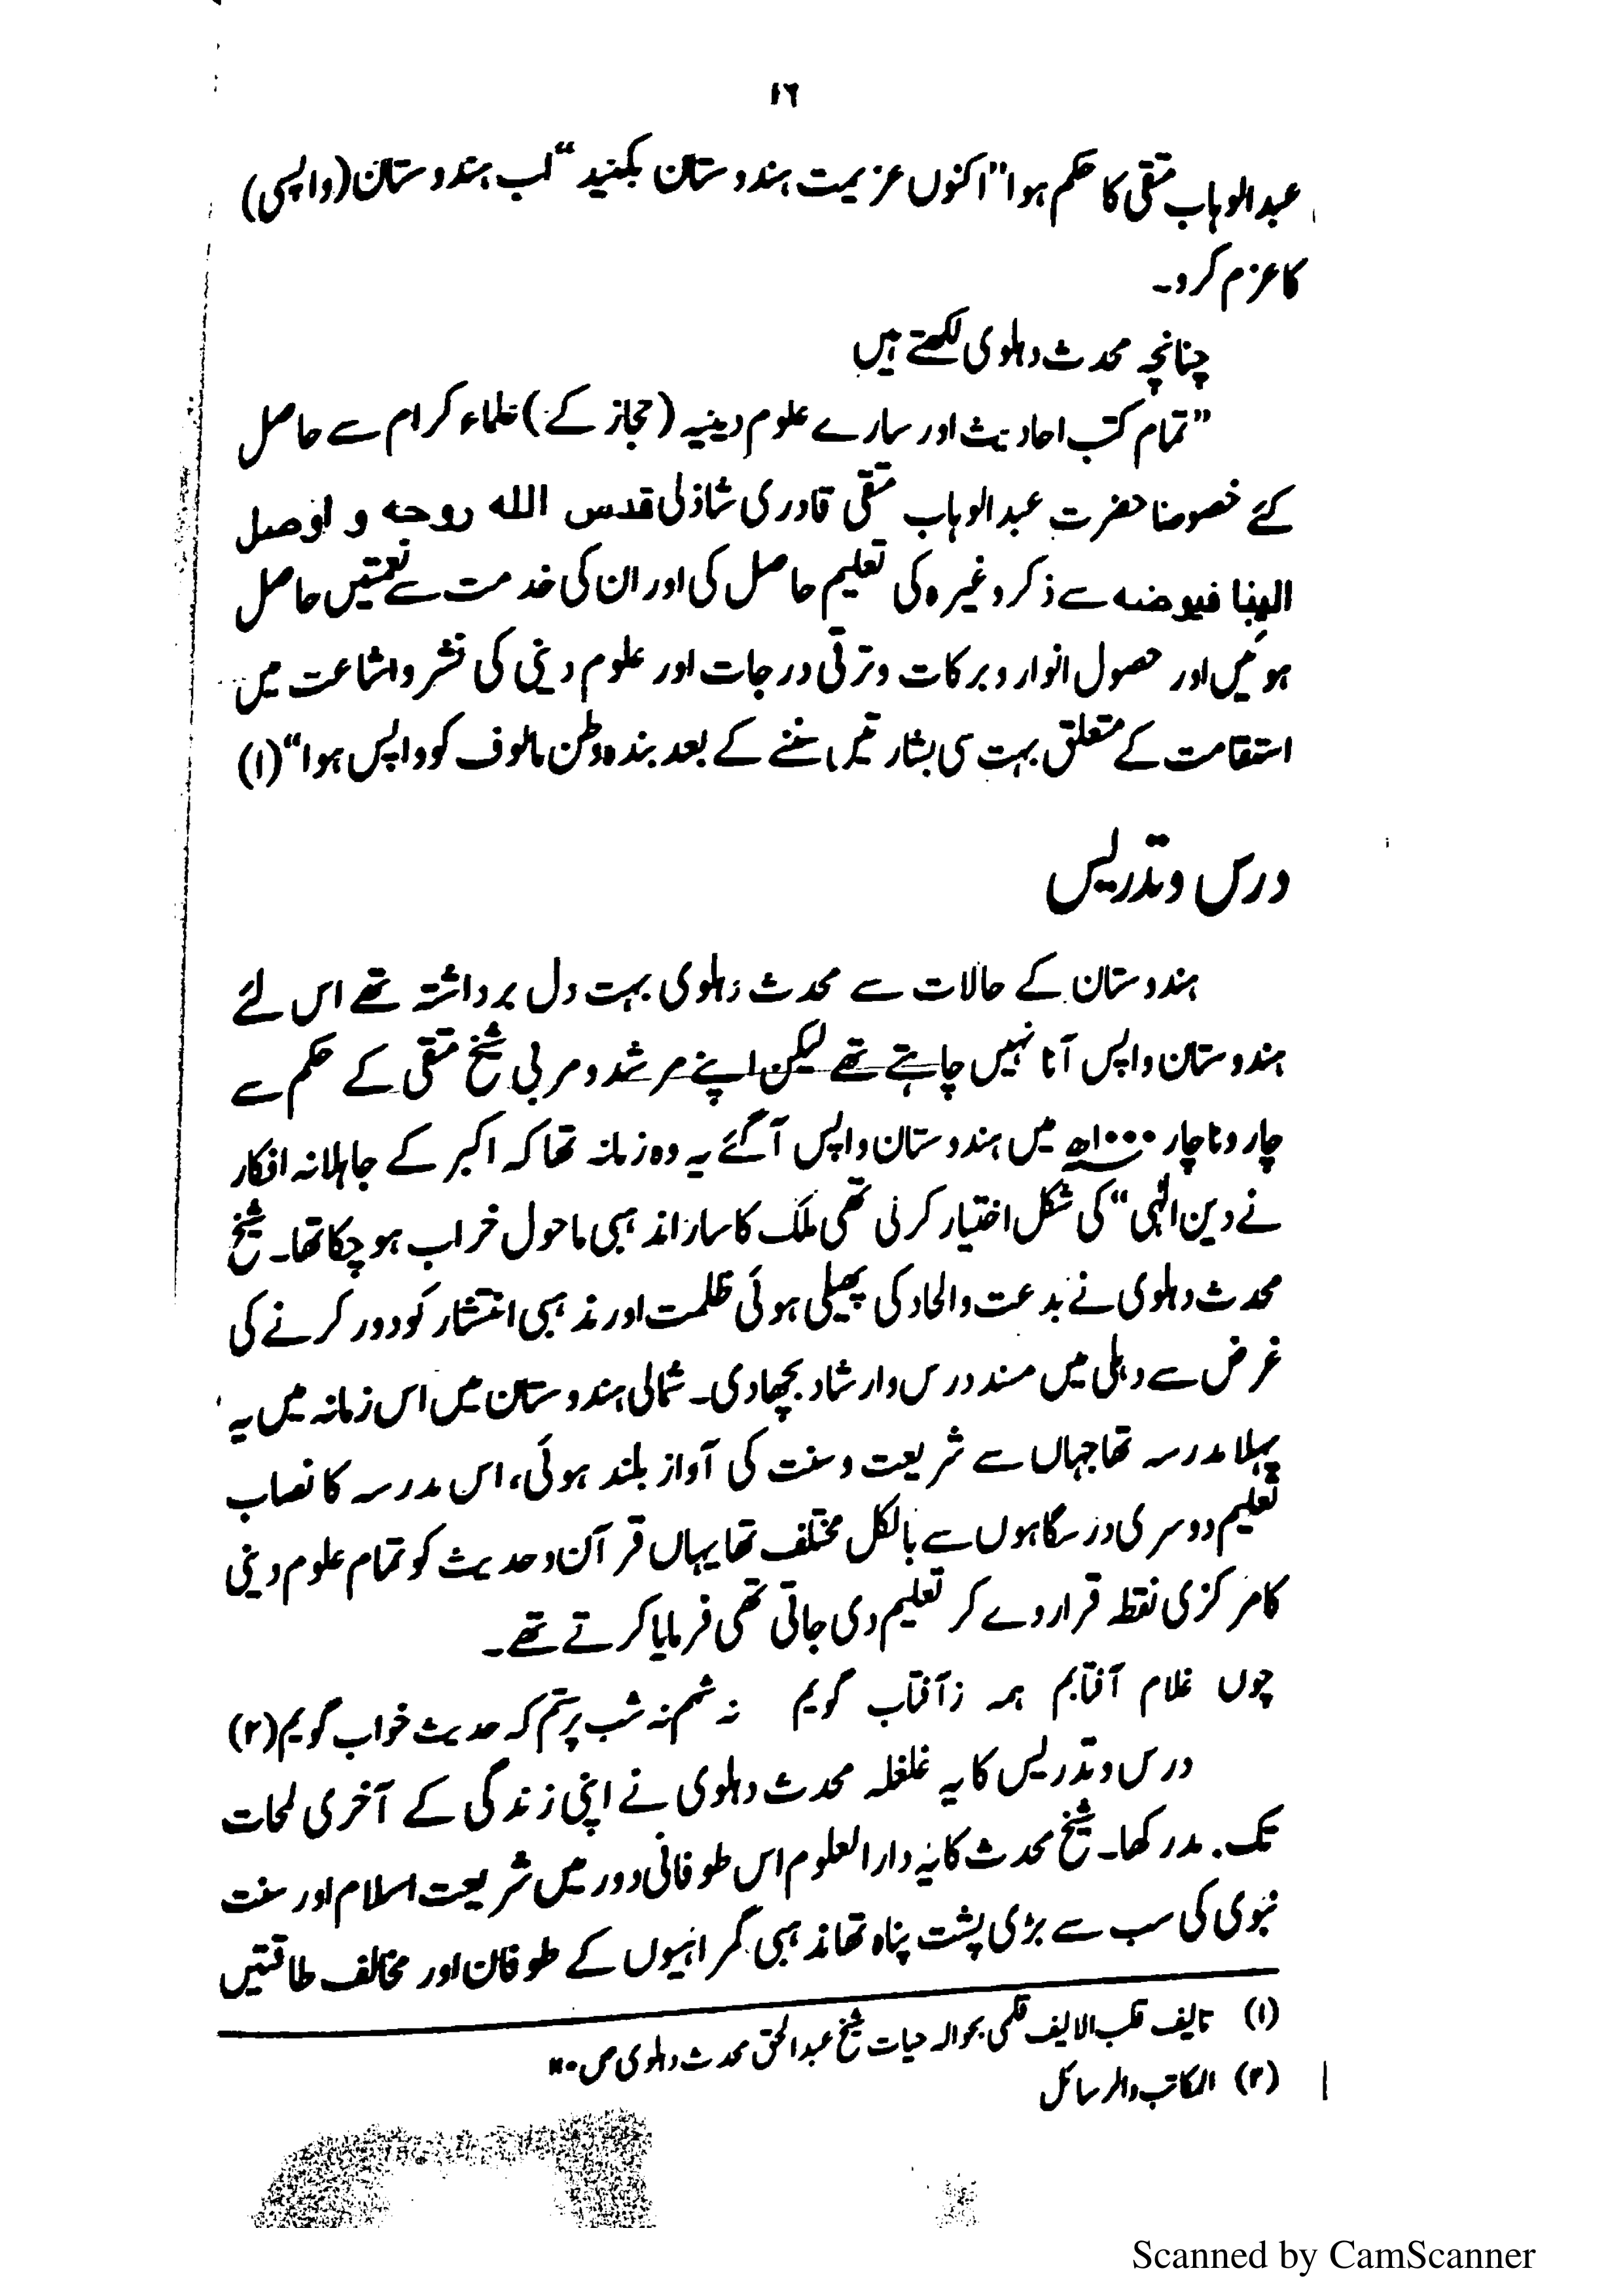 ۱۶
عبدالوہاب متقی کا حکم ہوا "اکنوں عزیمت ہندوستان بکنید" اب ہندوستان (واپسی)
کا عزم کرو۔
چنانچہ محدث دہلوی لکھتے ہیں
"تمام کتب احادیث اور سارے علوم دینیہ (حجاز کے) علماء کرام سے حاصل
کئے خصوصا حضرت عبدالوہاب متقی قادری شاذلی قدس الله روحه و اوصل
الينا فيوضه سے ذکر وغیرہ کی تعلیم حاصل کی اور ان کی خدمت سے نعمتیں حاصل
ہوئیں اور حصول انوار وبرکات وترقی درجات اور علوم دینی کی نشر واشاعت میں
استقامت کے متعلق بہت سی بشارتیں سننے کے بعد بندہ وطن مالوف کو واپس ہوا" (۱)
درس وتدریس
ہندوستان کے حالات سے محدث دہلوی بہت دل برداشتہ تھے اس لئے
ہندوستان واپس آنا نہیں چاہتے تھے لیکن اپنے مرشد ومربی شیخ متقی کے حکم سے
چار وناچار ۱۰۰۰ھ میں ہندوستان واپس آگئے یہ وہ زمانہ تھا کہ اکبر کے جاہلانہ افکار
نے دین الٰہی" کی شکل اختیار کرلی تھی ملک کا سارا مذہبی ماحول خراب ہوچکا تھا۔ شیخ
محدث دہلوی نے بدعت والحاد کی پھیلی ہوئی ظلمت اور مذہبی انتشار کو دور کرنے کی
غرض سے دہلی میں مسند درس وارشاد بچھادی۔ شمالی ہندوستان میں اس زمانہ میں یہ
پہلا مدرسہ تھا جہاں سے شریعت وسنت کی آواز بلند ہوئی، اس مدرسہ کا نصاب
تعلیم دوسری درسگاہوں سے بالکل مختلف تھا یہاں قرآن وحدیث کو تمام علوم دینی
کا مرکزی نقطہ قرار دے کر تعلیم دی جاتی تھی فرمایا کرتے تھے۔
چوں غلام آفتابم ہمہ زآفتاب گویم نہ شبم نہ شب پرستم کہ حدیث خواب گویم (۲)
درس وتدریس کا یہ غلغلہ محدث دہلوی نے اپنی زندگی کے آخری لمحات
تک. مدرکھا۔ شیخ محدث کا یہ دارالعلوم اس طوفانی دور میں شریعت اسلام اور سنت
نبوی کی سب سے بڑی پشت پناہ تھا مذہبی گمراہیوں کے طوفان اور مخالف طاقتیں
(۱) تالیف قلب الالیف قلمی بحوالہ حیات شیخ عبدالحق محدث دہلوی ص
(۲) المکاتب والرسائل
Scanned by CamScanner